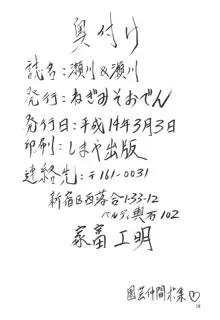 奥付け
誌名:瀬川&瀬川
発行:ねぎみそおでん
発行日:平成14年3月3日
印刷:しまや出版
連絡先:〒161-0031
新宿区西落合1-33-12
ベルデ興石102
家富工明
園芸仲間求集♡